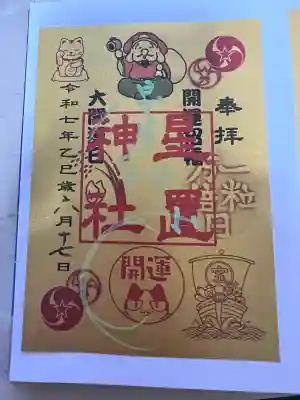 奉拝
一粒万倍日
開運招福
星置
神社
大開運日
令和七年乙巳歳八月十七日
開運
宝